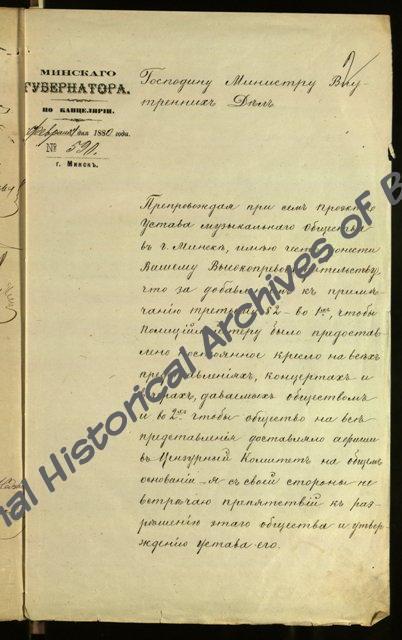 МИНСКАГО
ГУБЕРНАТОРА.
ПО КАНЦЕЛЯРІИ.
Февраля дня 1880 года.
№ 590.
г. Минскъ.
Господину Министру Внутреннихъ Дѣлъ
Препровождая при семъ проэктъ
Устава музыкальнаго общества
въ г. Минскѣ, имѣю честь донести
Вашему Высокопревосходительству,
что за добавленіемъ къ примѣчанію третьему § 2 - во 1хъ, чтобы
Полиціймейстеру было предоставлено постоянное кресло на всѣхъ
представленіяхъ, концертахъ и
вечерахъ, даваемыхъ обществомъ
и во 2хъ чтобы общество на всѣ
представленія доставляло афиши
въ Цензурный Комитетъ на общемъ
основаніи - я съ своей стороны не
встрѣчаю препятствій къ разрѣшенію этаго общества и утвержденію Устава его.
Historical Archives of B